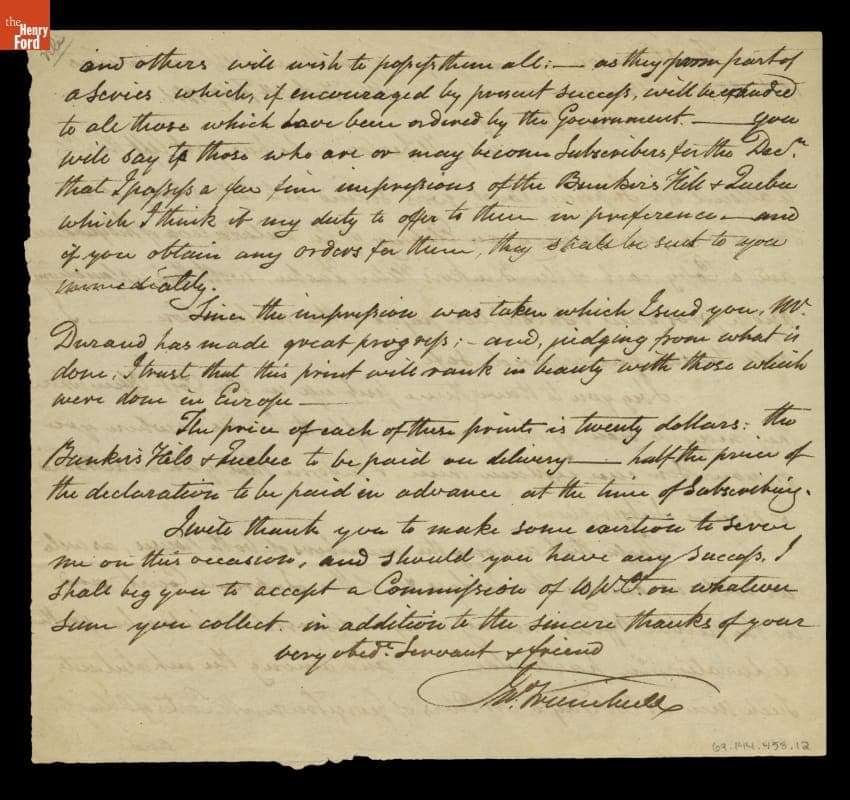 the
Henry
Ford
and others will wish to possess them all: — as they form part of
a Series which, if encouraged by present success, will be extended
to all those which have been ordered by the Government. — you
will say to those who are or may become Subscribers for the Decn.
that I possess a few fine impressions of the Bunker's Hill & Quebec
which I think it my duty to offer to them in preference — and
if you obtain any orders for them, they shall be sent to you
immediately.
Since the impression was taken which I send you, Mr.
Durand has made great progress; – and, judging from what is
done, I trust that this print will rank in beauty with those which
were done in Europe —
The price of each of these prints is twenty dollars: the
Bunker's Hill & Quebec to be paid on delivery — half the price of
the declaration to be paid in advance at the time of Subscribing.
I will thank you to make some exertion to serve
me on this occasion, and should you have any success, I
shall beg you to accept a Commission of 10 P Ct. on whatever
sum you collect. in addition to the sincere thanks of your
very obedt. Servant & friend
Jno. Trumbull
69.144.458.12